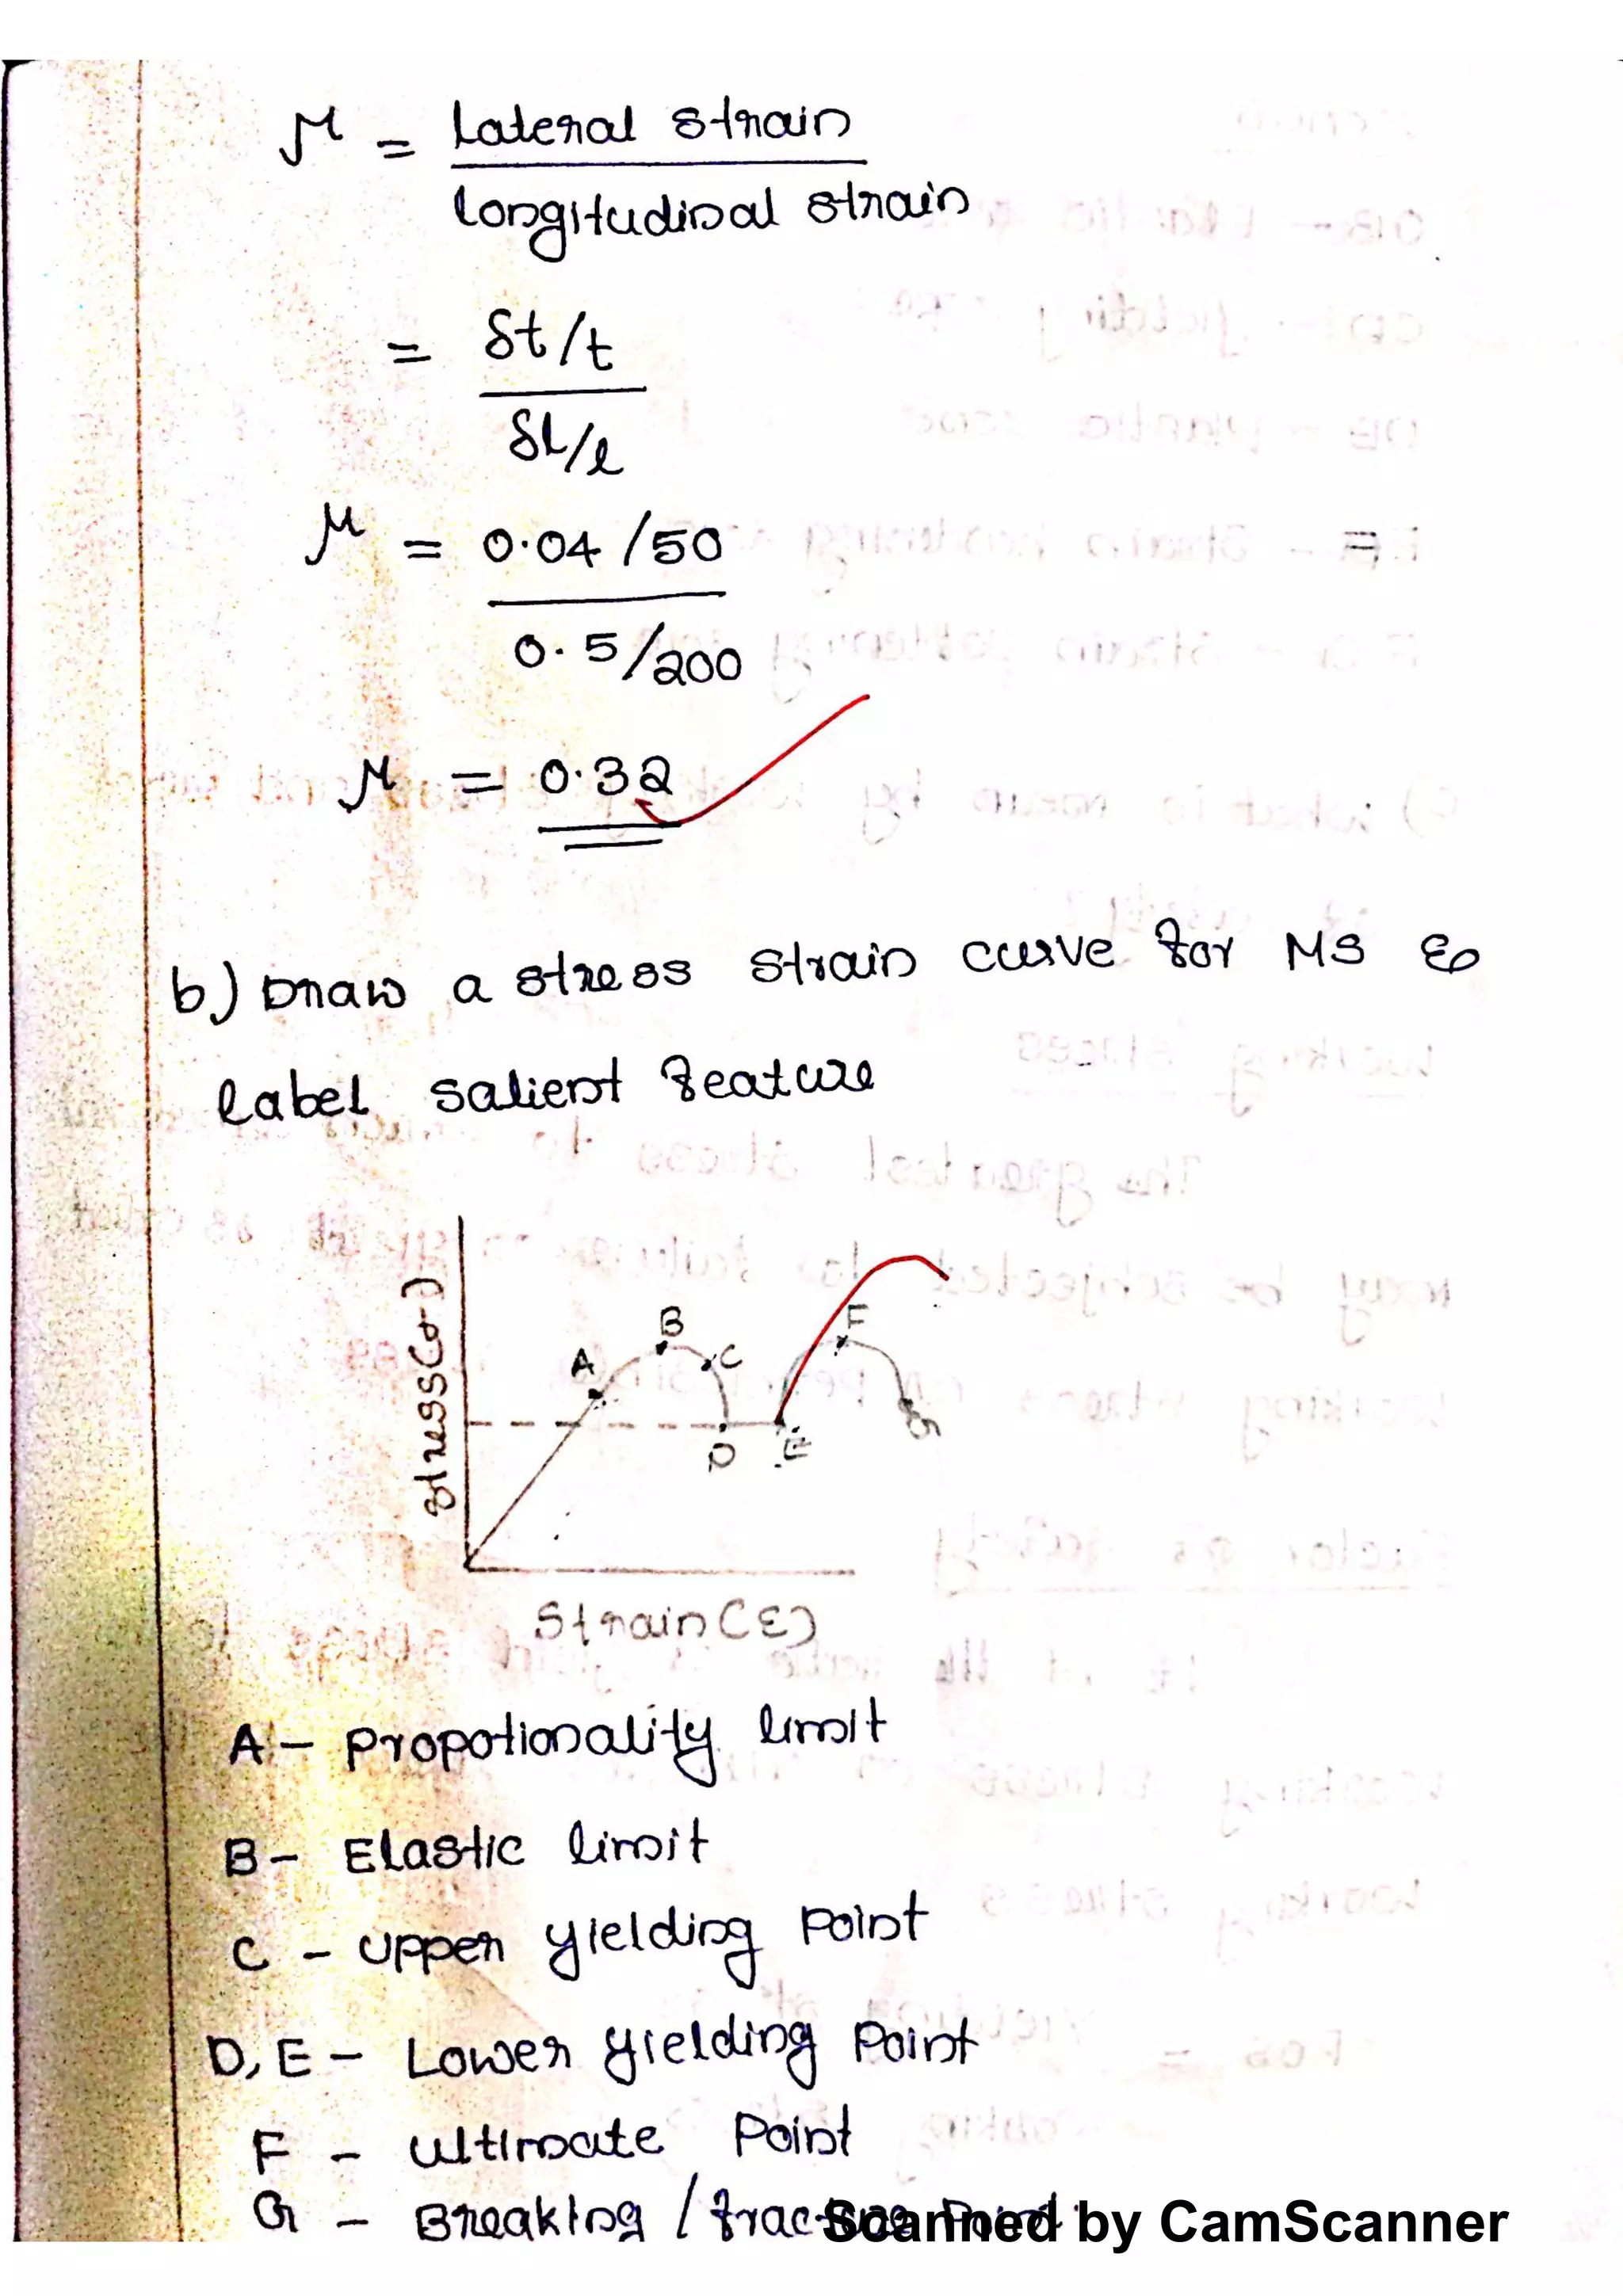 μ = Lateral strain
longitudinal strain
= δt/t
δL/l
μ = 0.04/50
0.5/200
μ = 0.32
b) Draw a stress strain curve for MS &
label salient feature
Stress(σ)
A
B
C
D
E
F
G
Strain(ε)
A - Propotionality limit
B - Elastic limit
C - Upper yielding Point
D, E - Lower yielding Point
F - Ultimate Point
G - Breaking / fracture Point
Scanned by CamScanner